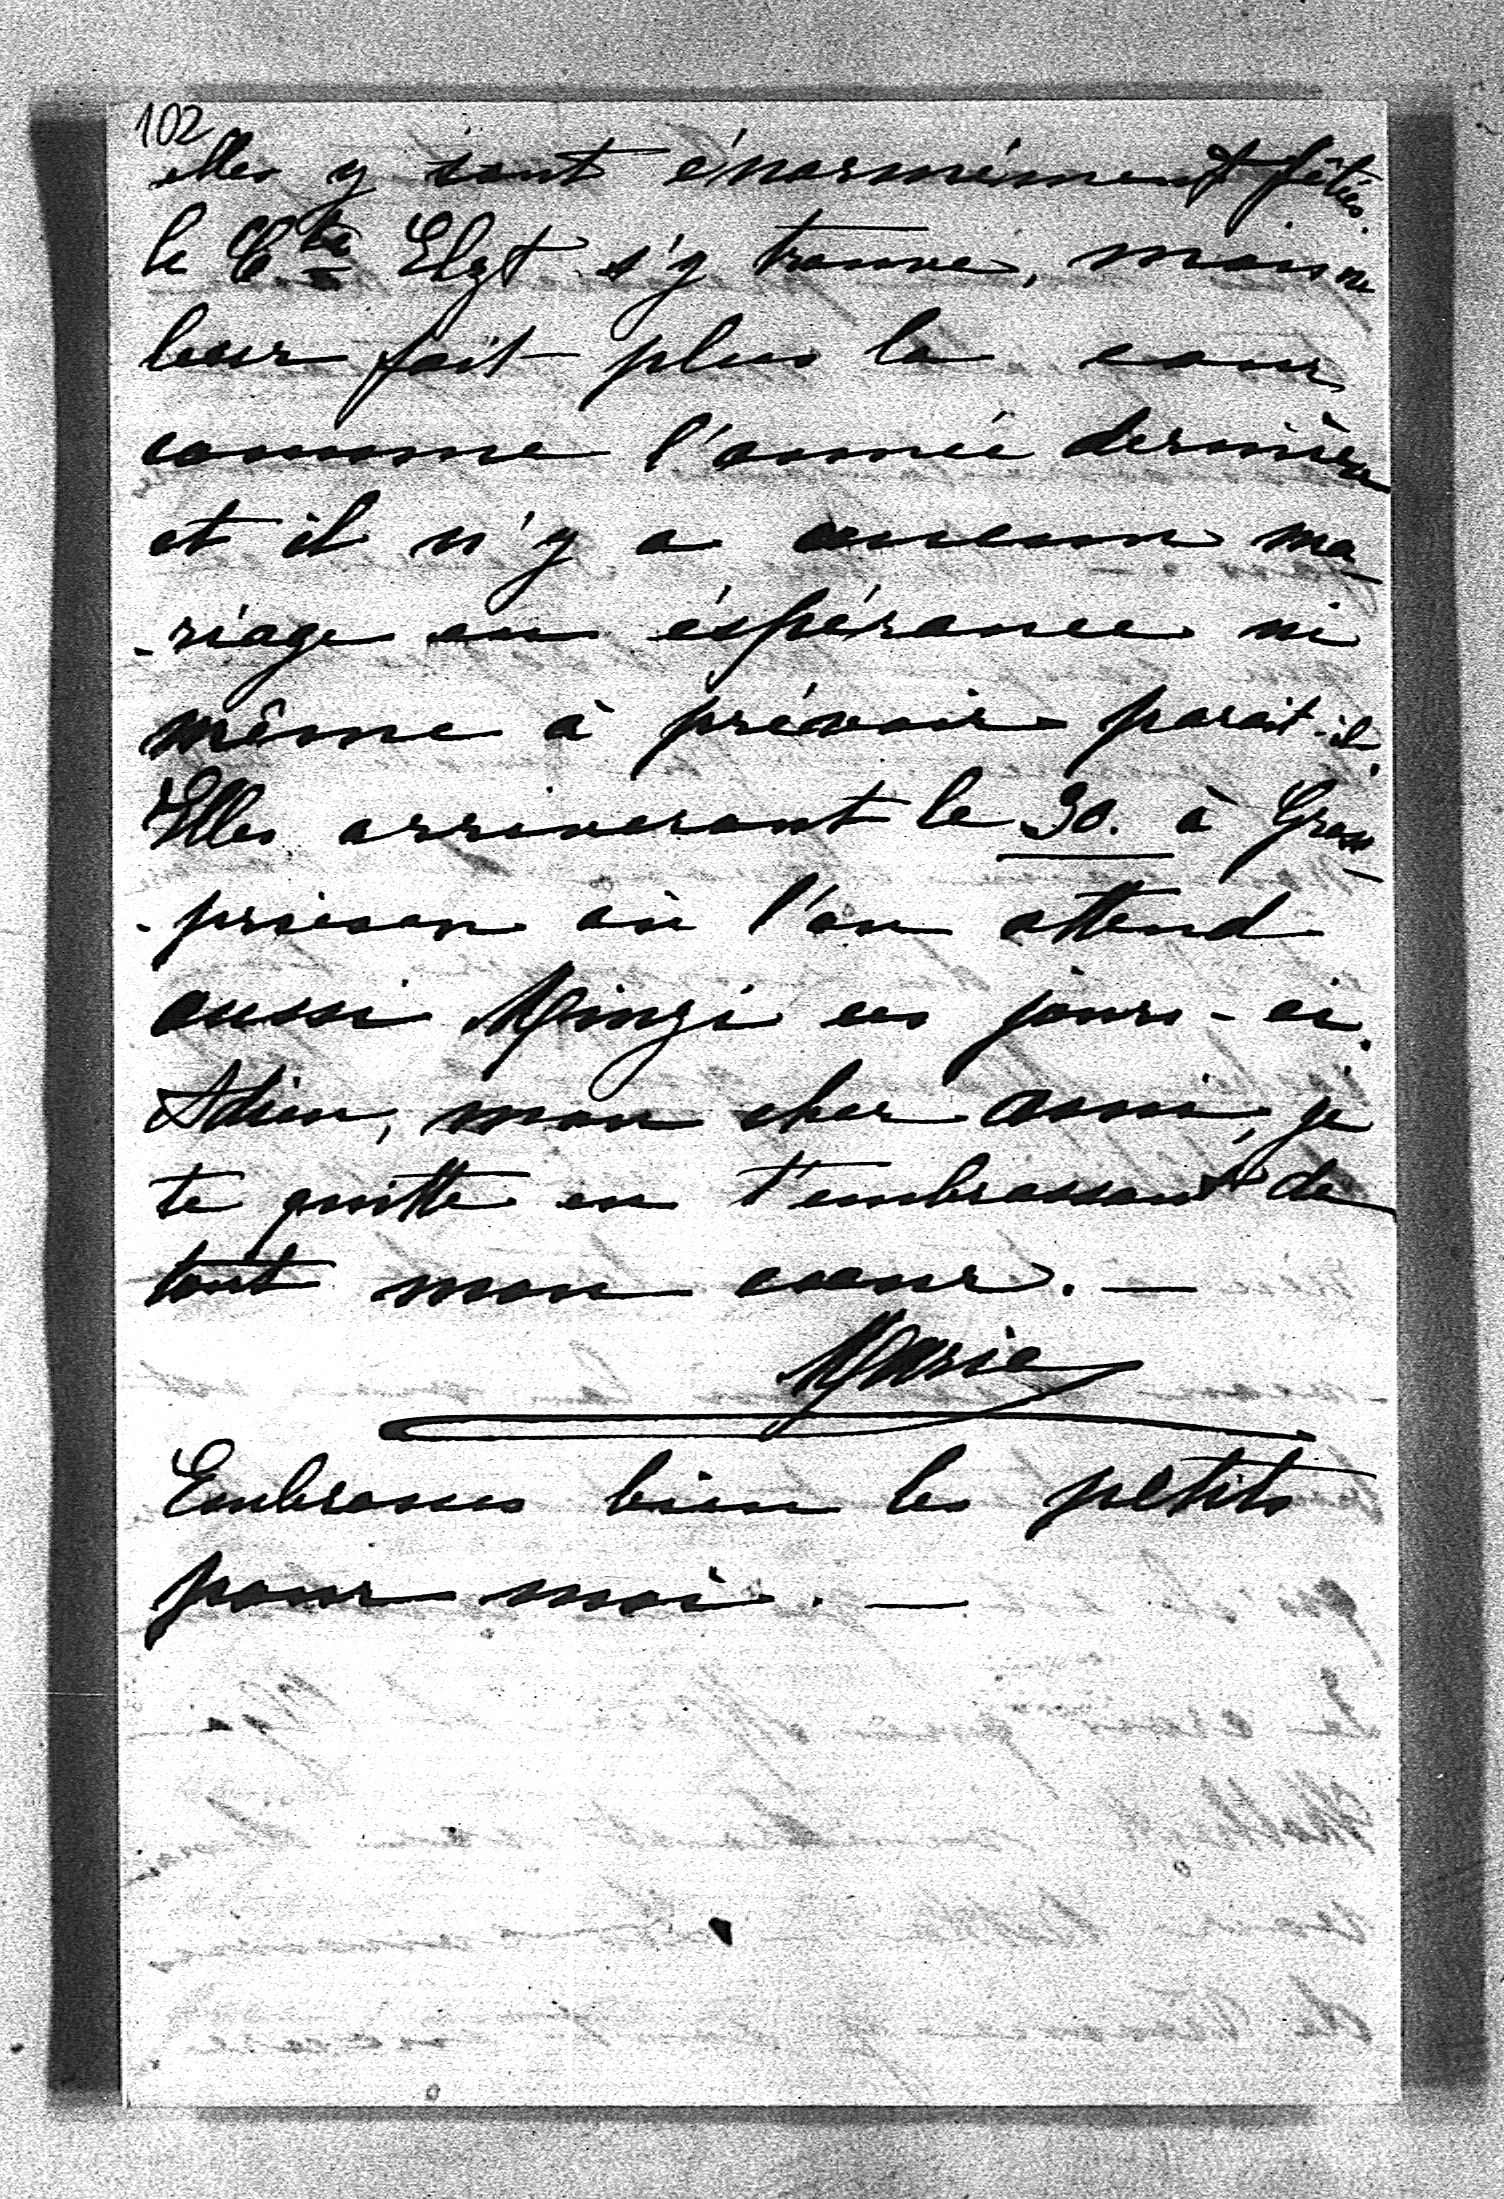 102
elles y sont énormément fêtées.
le Cte Elzt s'y trouve, mais ne
leur fait plus la cour
comme l'année dernière
et il n'y a aucun ma-
-riage en éspérance ni
même à prévoir parait-il.
Elles arriveront le 30. à
où l'on attend
aussi Minzi ces jours-ci.
Adieu, mon cher ami, je
te quitte en t'embrassant de
tout mon coeur. —
Marie
Embrasses bien les petits
pour moi. —